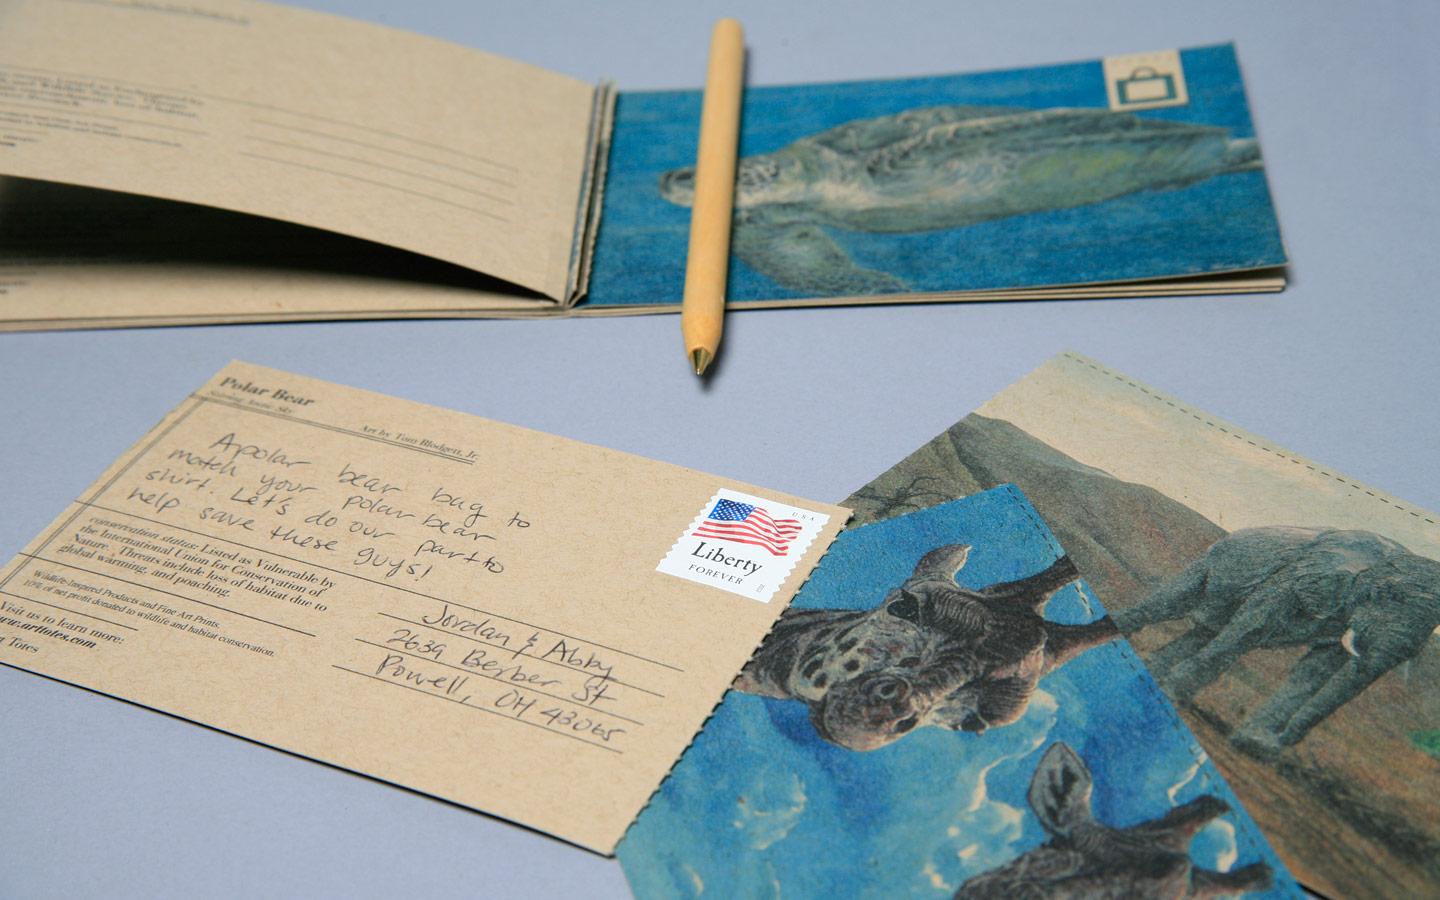 Polar Bear
Art by Tom Blodgett, Jr.
A polar bear bag to
match your polar bear
shirt. Let's do our part to
help save these guys!
conservation status: Listed as Vulnerable by
the International Union for Conservation of
Nature. Threats include loss of habitat due to
global warming, and poaching.
Wildlife-Inspired Products and Fine Art Prints.
10% of net profit donated to wildlife and habitat conservation.
Visit us to learn more:
www.arttotes.com
Totes
USA
Liberty
FOREVER
Jordan & Abby
2639 Berber St
Powell, OH 43065